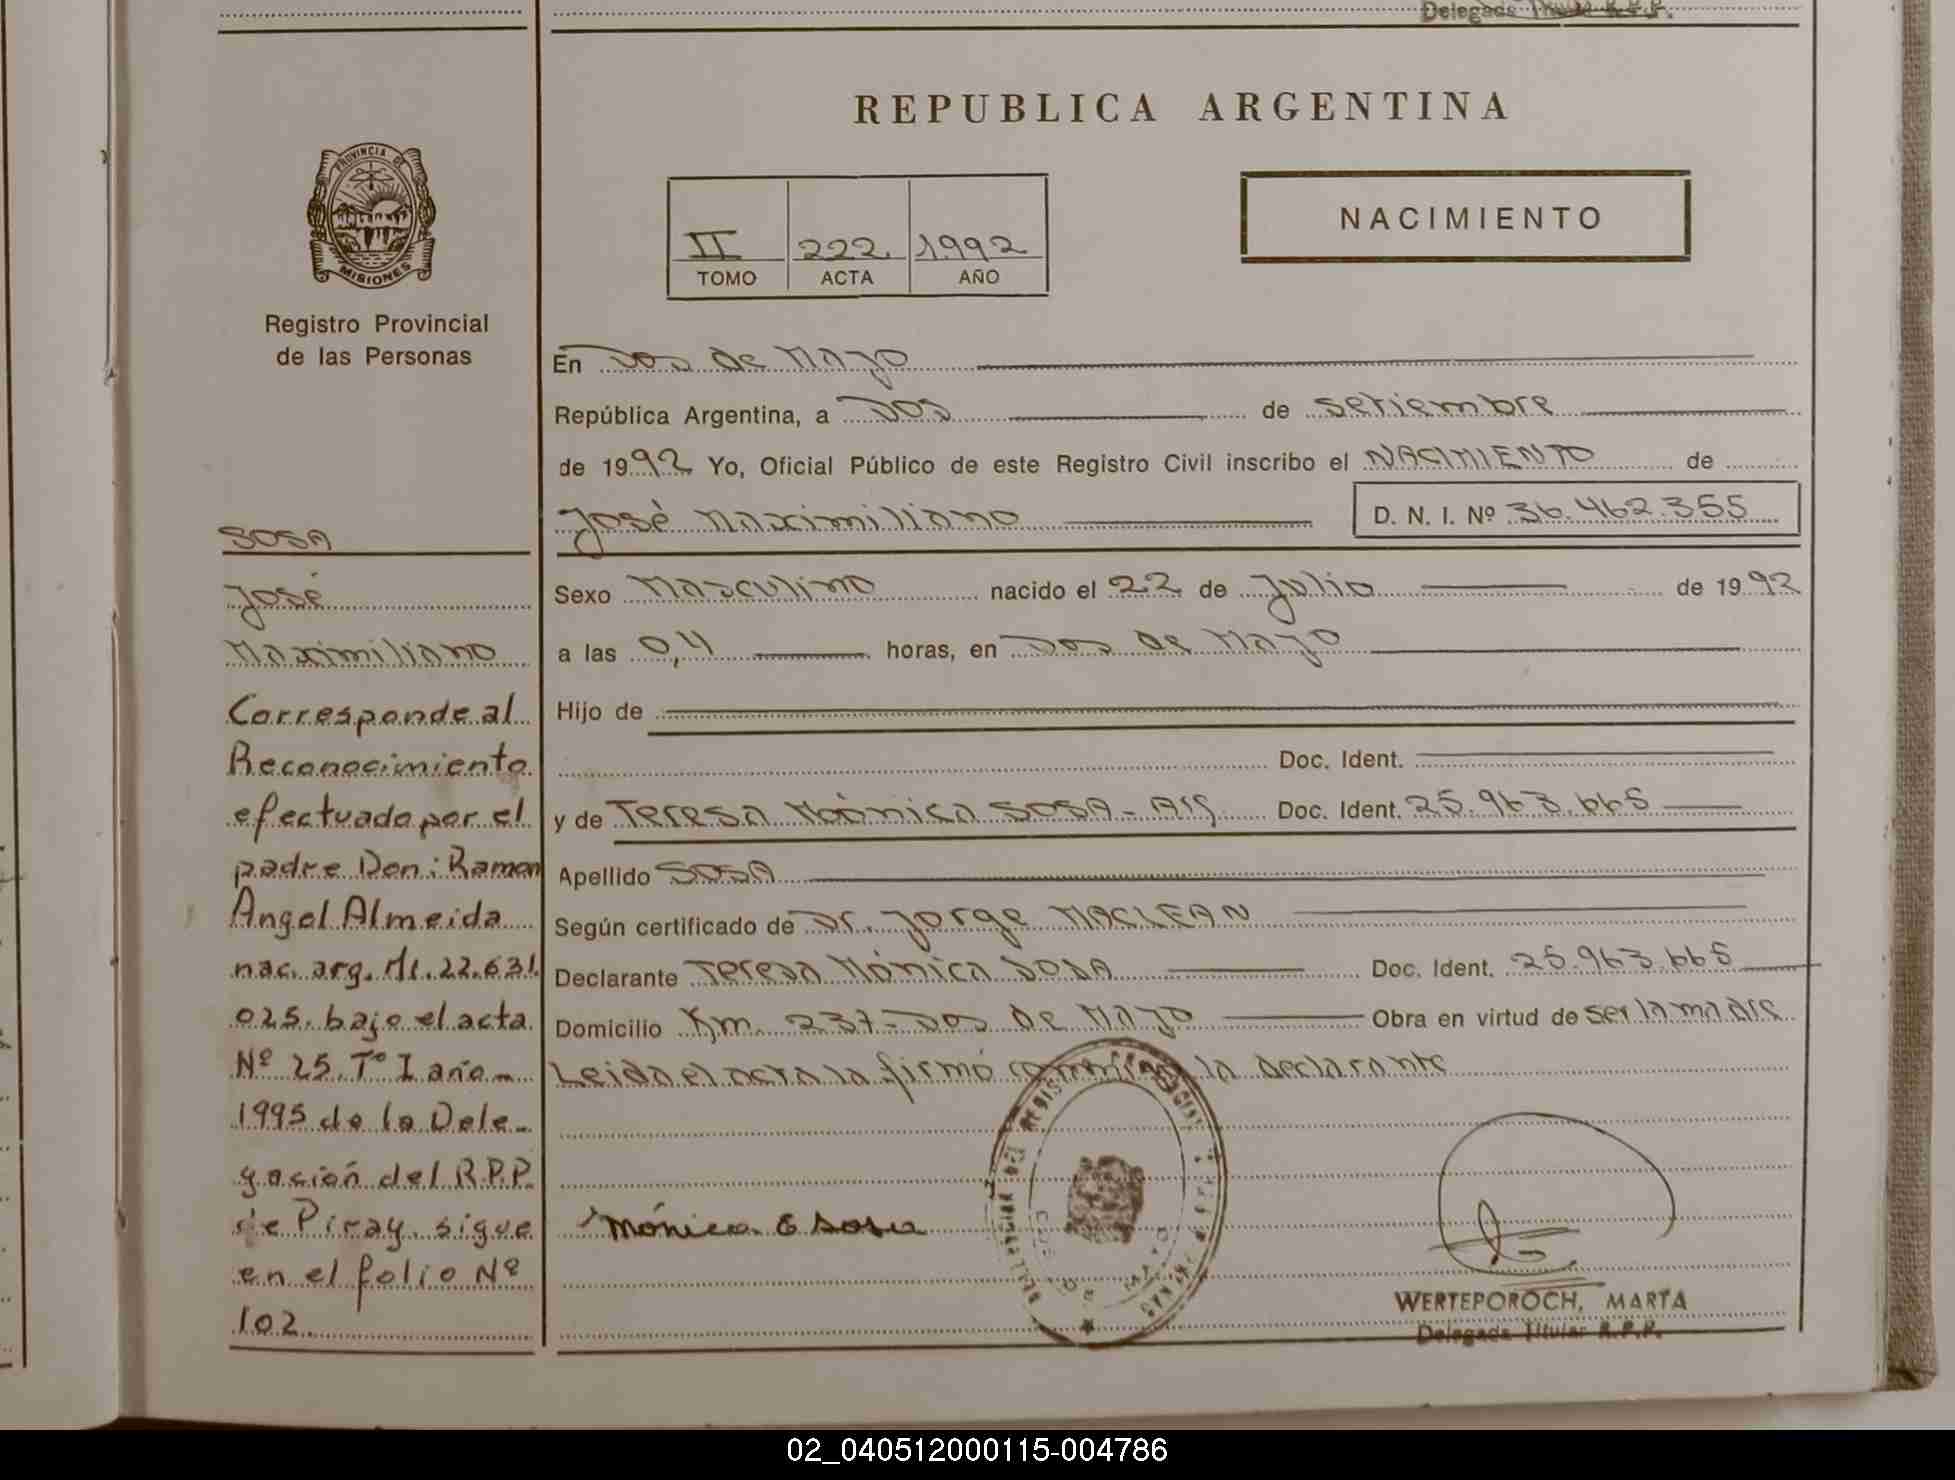 Delegada Titular R.P.P.
REPUBLICA ARGENTINA
PROVINCIA DE
MISIONES
Registro Provincial
de las Personas
II 222 1992
TOMO ACTA AÑO
NACIMIENTO
En Dos de Mayo
República Argentina, a Dos de setiembre
de 1992 Yo, Oficial Público de este Registro Civil inscribo el NACIMIENTO de
José Maximiliano D. N. I. Nº 36.462.355
Sexo Masculino nacido el 22 de Julio de 1992
a las 0,4 horas, en Dos de Mayo
Hijo de
Doc. Ident.
y de Teresa Mónica SOSA - Arg. Doc. Ident. 25.963.665
Apellido SOSA
Según certificado de Dr. Jorge MACLEAN
Declarante Teresa Mónica SOSA Doc. Ident. 25.963.665
Domicilio Km. 237 - Dos de Mayo Obra en virtud de ser la madre
Leida el acta la firmó conmigo la declarante
Mónica Sosa
WERTEPOROCH, MARTA
Delegada Titular R.P.P.
SOSA
José
Maximiliano
Corresponde al
Reconocimiento
efectuado por el
padre Don: Ramon
Angel Almeida
nac. arg. M.I. 22.631.
025. bajo el acta
Nº 25. Tº I año -
1995 de la Dele-
gación del R.P.P.
de Piray. sigue
en el folio Nº
102.
02_040512000115-004786